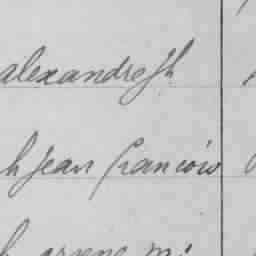 alexandre Jh
h Jean francois